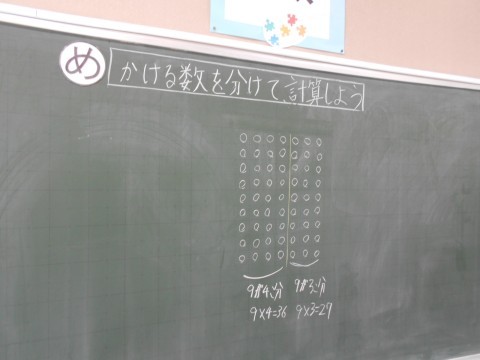 め
かける数を分けて計算しよう
9が4つ分 9が3つ分
9×4=36 9×3=27